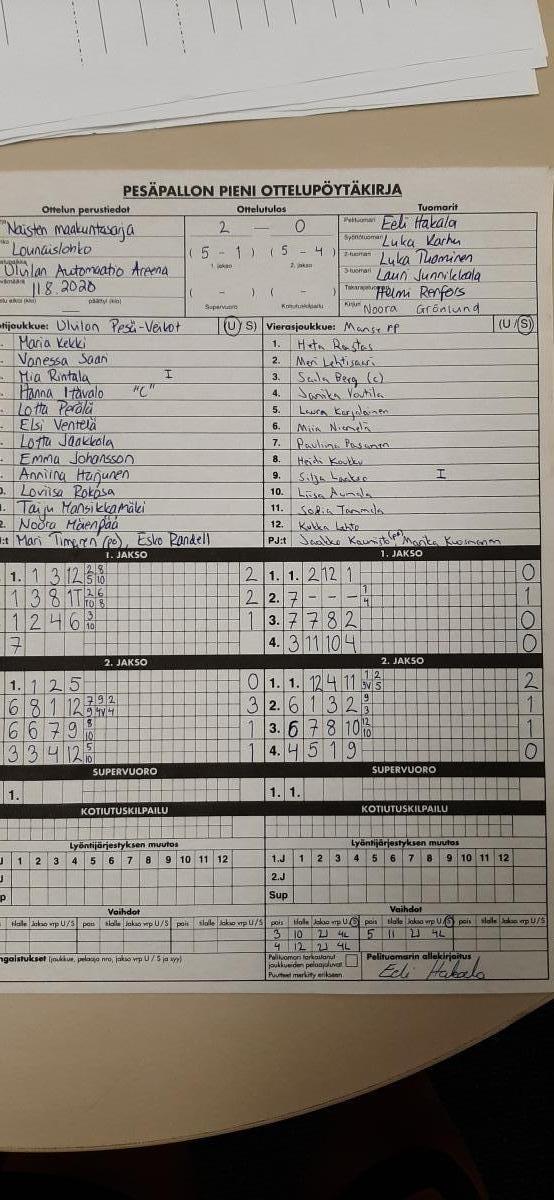 PESÄPALLON PIENI OTTELUPÖYTÄKIRJA
Ottelun perustiedot Ottelutulos Tuomarit
Naisten maakuntasarja
Lounaislohko
Ulvilan Automaatio Areena
11.8.2020
2 — 0
( 5 - 1 ) ( 5 - 4 )
1. jakso 2. jakso
( - ) ( - )
Supervuoro Kotiutuskilpailu
Pelituomari Eeli Hakala
Syöttötuomari Luka Karhu
2-tuomari Luka Tuominen
3-tuomari Lauri Junnikkala
Takarajatuomari Helmi Renfors
Kirjuri Noora Grönlund
tijoukkue: Ulvilan Pesä-Veikot (U/S)
Maria Kekki
Vanessa Saari
Mia Rintala I
Hanna Itävalo "C"
Lotta Perälä
Elsi Ventelä
Lotta Jaakkola
Emma Johansson
Anniina Harjunen
Loviisa Rokosa
Taiju Mansikkamäki
Noora Mäenpää
Mari Timgren (po), Esko Randell
Vierasjoukkue: Manse PP (U/S)
1. Heta Rastas
2. Meri Lehtisaari
3. Saila Berg (c)
4. Janika Voutila
5. Laura Karjalainen
6. Miia Niemelä
7. Pauliina Pasanen
8. Heidi Koukku
9. Silja Laakso I
10. Liisa Aumala
11. Sofia Tammila
12. Kukka Lehto
PJ:t Jaakko Kaunisto (po), Marika Kuosmanen
1. JAKSO
1. 1 3 12 2 8 5 10 2
1 3 8 11 2 6 10 8 2
1 2 4 6 3 10 1
7
1. JAKSO
1. 1. 2 12 1 0
2. 7 - - - 1 4 1
3. 7 7 8 2 0
4. 3 11 10 4 0
2. JAKSO
1. 1 2 5 0
6 8 1 12 7 9 2 9 4V 4 3
6 6 7 9 8 10 1
3 3 4 12 5 10 1
2. JAKSO
1. 1. 12 4 11 1 2 3V 5 2
2. 6 1 3 2 9 3 1
3. 6 7 8 10 12 10 1
4. 4 5 1 9 0
SUPERVUORO SUPERVUORO
1. 1. 1.
KOTIUTUSKILPAILU KOTIUTUSKILPAILU
Lyöntijärjestyksen muutos Lyöntijärjestyksen muutos
J 1 2 3 4 5 6 7 8 9 10 11 12
1.J 1 2 3 4 5 6 7 8 9 10 11 12
2.J
Sup
Vaihdot Vaihdot
tilalle Jakso vrp U/S pois tilalle Jakso vrp U/S pois tilalle Jakso vrp U/S
pois tilalle Jakso vrp U/S pois tilalle Jakso vrp U/S pois tilalle Jakso vrp U/S
3 10 2J 4L 5 11 2J 4L
4 12 2J 4L
ngaistukset (joukkue, pelaaja nro, jakso vrp U / S ja syy)
Pelituomari tarkastanut
joukkueiden pelaajaluvat
Puutteet merkitty erikseen
Pelituomarin allekirjoitus
Eeli Hakala